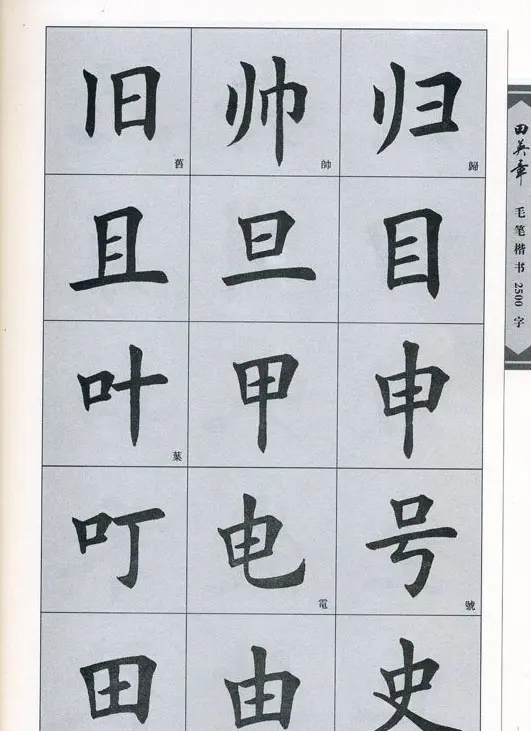 旧 舊 帅 帥 归 歸
且 旦 目
叶 葉 甲 申
叮 电 電 号 號
田 由 史
田英章 毛笔楷书2500字